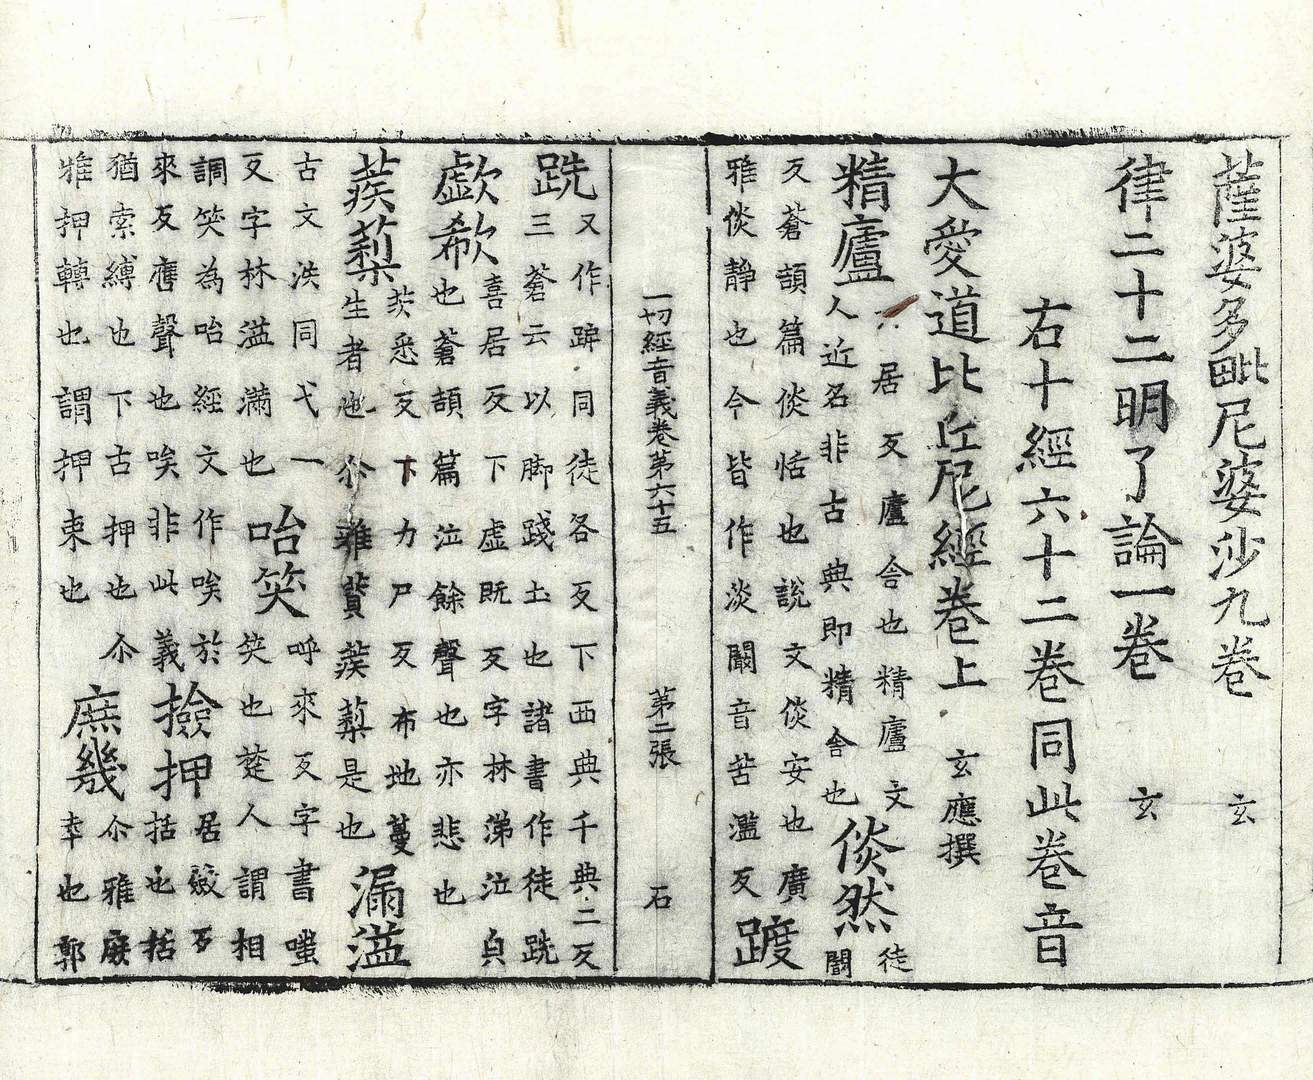 薩婆多毗尼婆沙九卷 玄
律二十二明了論一卷 玄
右十經六十二卷同此卷音
大愛道比丘尼經卷上 玄應撰
精廬 居反廬舍也精廬文
人近名非古典即精舍也 倓然 徒闞
反蒼頡篇倓恬也說文倓安也廣
雅倓靜也今皆作淡闞音苦濫反 踱
一切經音義卷第六十五 第二張 石
跣 又作䟴同徒各反下西典千典二反
三蒼云以脚踐土也諸書作徒跣
歔欷 喜居反下虛既反字林涕泣皃
也蒼頡篇泣餘聲也亦悲也
蒺蔾 茨悉反下力尸反布地蔓
生者也尒雅薋蒺蔾是也 漏溢
古文泆同弋一
反字林溢滿也 咍笑 呼來反字書嗤
笑也楚人謂相
調笑為咍經文作唉於
來反譍聲也唉非此義 撿押 居儼反
括也括
猶索縛也下古押也尒
雅押轉也謂押束也 庶幾 尒雅庶
幸也郭